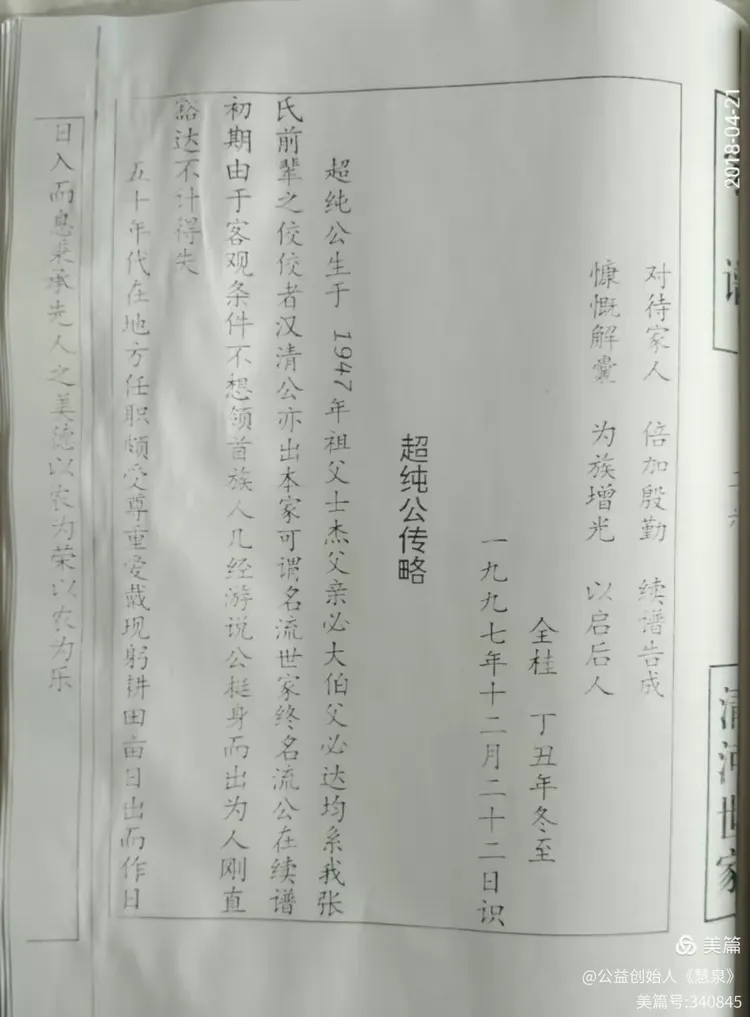 对待家人 倍加殷勤 续谱告成
慷慨解囊 为族增光 以启后人
全桂 丁丑年冬至
一九九七年十二月二十二日识
超纯公传略
超纯公生于 1947年祖父士杰父亲必大伯父必达均系我张
氏前辈之佼佼者汉清公亦出本家可谓名流世家终名流公在续谱
初期由于客观条件不想领首族人几经游说公挺身而出为人刚直
豁达不计得失
五十年代在地方任职颇受尊重爱戴现躬耕田亩日出而作日
日入而息秉承先人之美德以农为荣以农为乐
清河世家
2018-04-21
美篇
@公益创始人《慧泉》
美篇号:340845